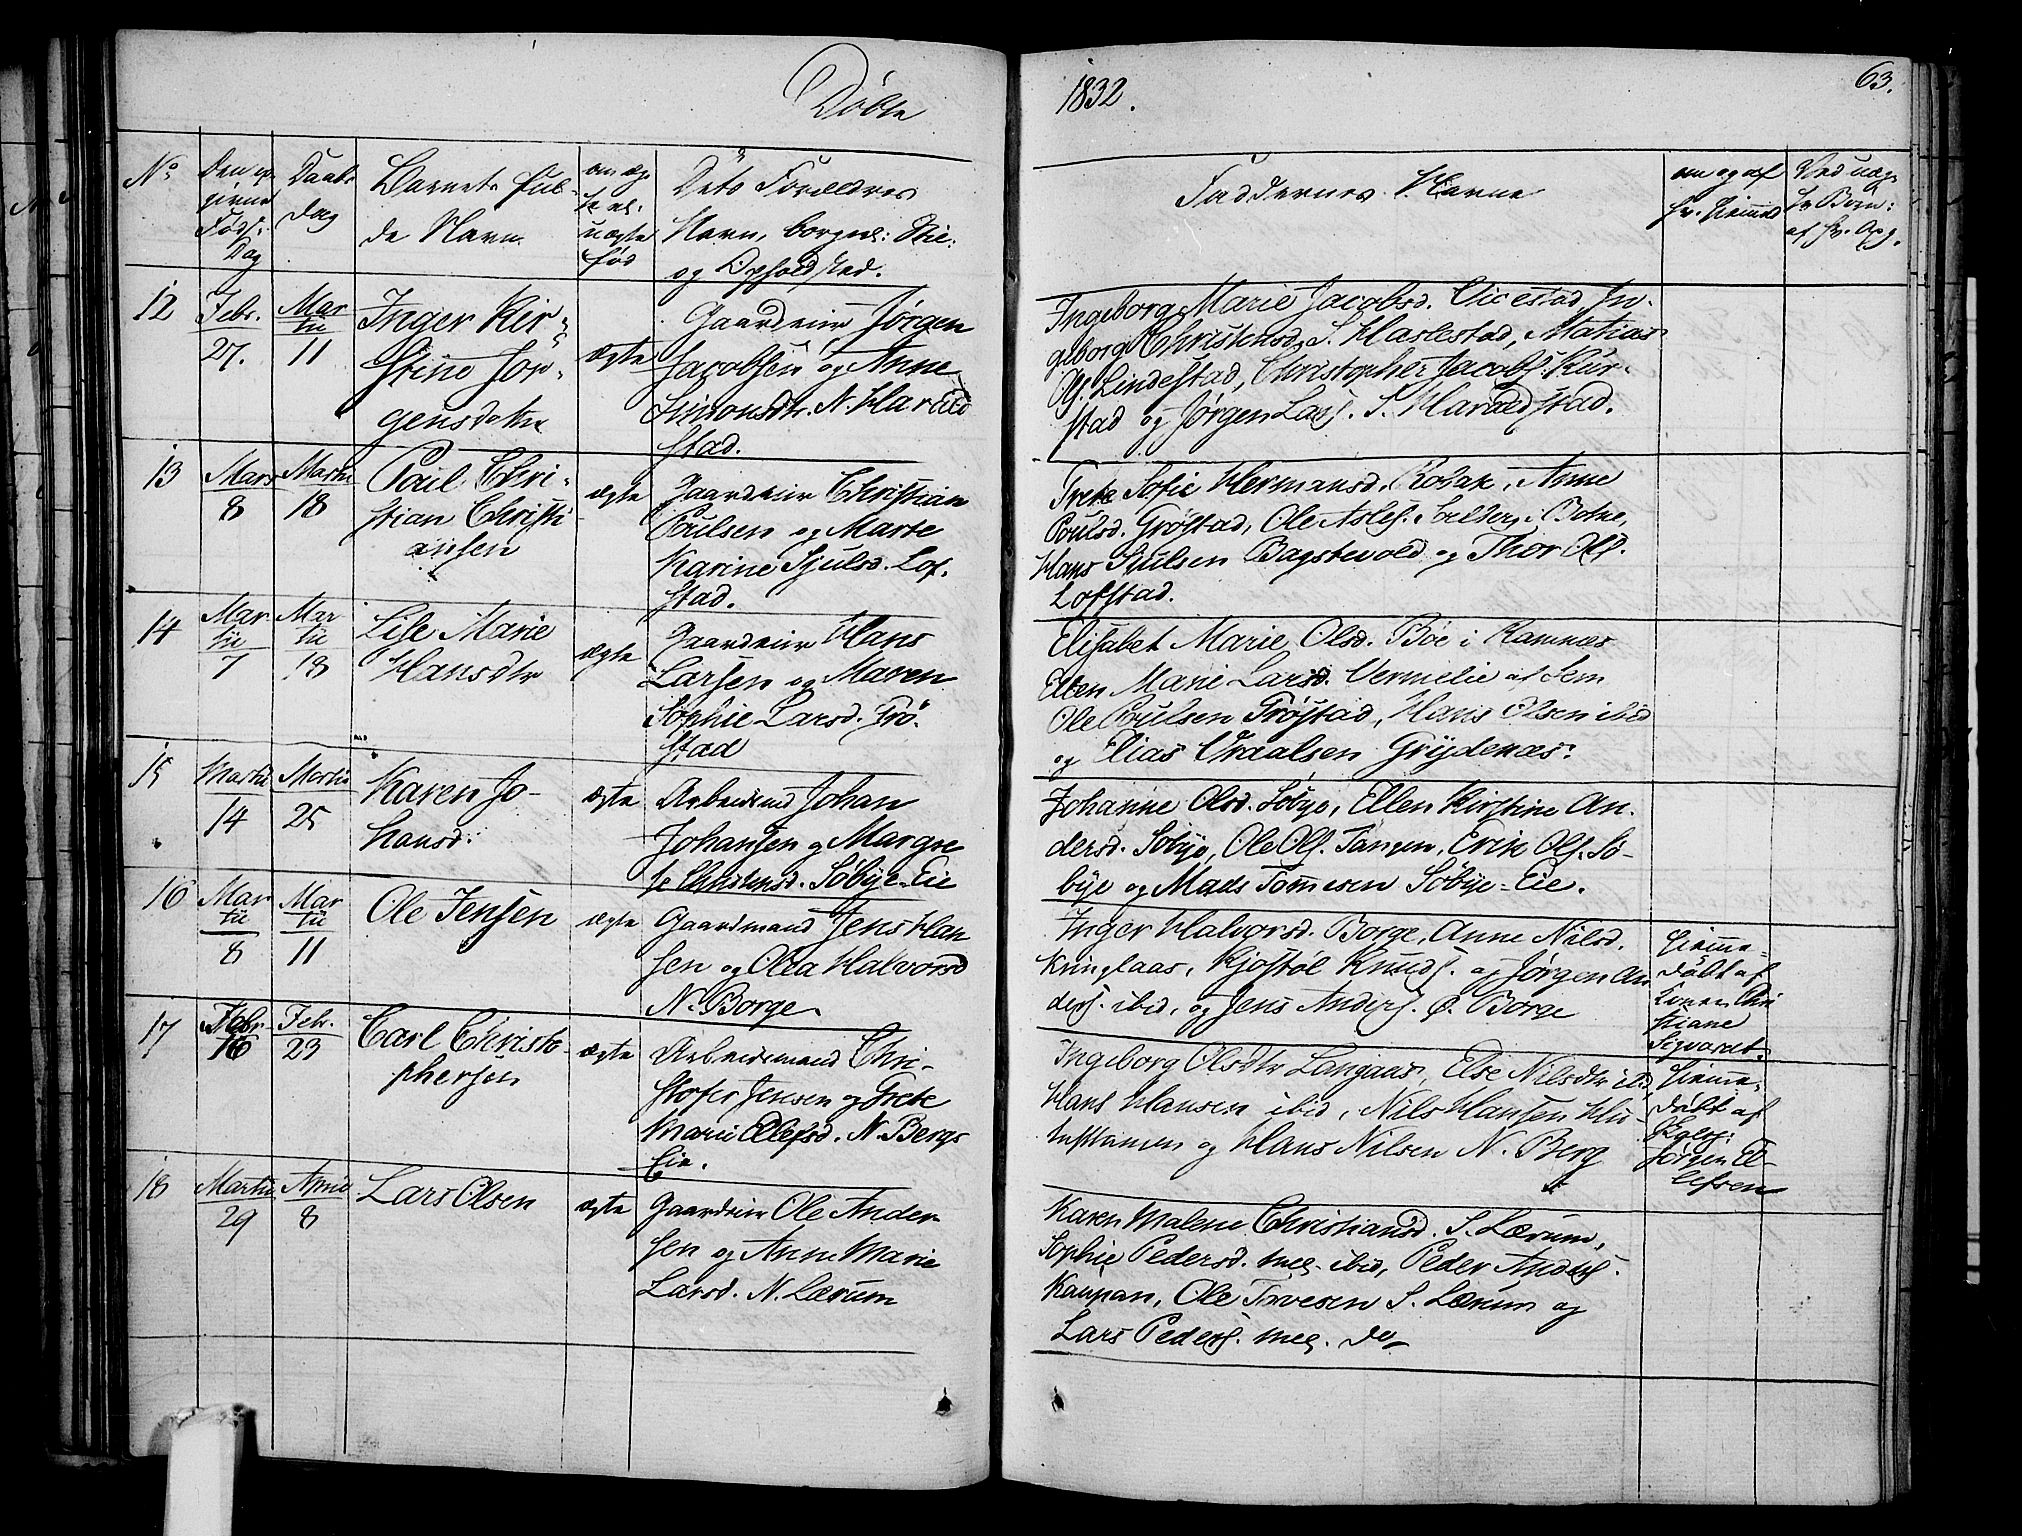 Döbte
1832.
63.
No
Den op
givne
Föds:
Dag
Daabs
Dag
Barnets ful-
de Navn
om æg-
te el.
uægte
född
Dets Forældres
Navn, borgerl: Stil:
og Opholdsted.
Faddernes Navne
om og af
hv. hiemmed
Ved uæg-
te Börn:
af hv. Opg.
12
Febr.
27.
Mar
tii
11
Inger Kir-
stine Jör-
gensdatter
ægte
Gaardeier Jørgen
Jacobsen og Anne
Simonsdtr. N. Harald
stad.
Ingeborg Marie Jacobsd.
geborg Christensd. S. Haslestad, Mathias
Ols. Lindestad, Christopher Jacobs.
stad og Jørgen Lars. S. Haraldstad.
13
Mars
8
Martii
18
Poul Chri-
stian Christi
ansen
ægte
Gaardeier Christian
Poulsen og Marte
Karine Hjulsd. Lof-
stad.
Grete Sofie Hermansd. Anne
Poulsd. Tröstad, Ole Asles. i Botne,
Hans Bagstevold og Thor Ols.
Lofstad.
14
Mar
tii
7
Mar
tii
18
Lise Marie
Hansdtr
ægte
Gaardeier Hans
Larsen og Maren
Sophie Larsd. Trö-
stad
Elisabet Marie Olsd. Böe i Ramnæs
Ellen Marie Larsd. Vermelie af Sem
Ole Poulsen Tröstad, Hans Olsen ibid
og Elias Grydenæs.
15
Martii
14
Martii
25
Karen Jo-
hansd.
ægte
Arbeidsmd Johan
Johansen og Margre
te Christensd. Söbye-Eie
Johanne Olsd. Söbye, Ellen Kirstine An-
dersd. Söbye, Ole Ols. Tangen, Erik Ols. Sö-
bye og Mads Tommesen Söbye-Eie.
16
Mar
tii
8
Mar
tii
11
Ole Jensen
ægte
Gaardmand Jens Han
sen og Olea Halvorsd
N. Borge.
Inger Halvorsd. Borge, Anne Nilsd.
Kringlaas, Kjøstøl Knuds. og Jørgen An
ders. ibid, og Jens Anders. Ö. Borge
Hiemme-
döbt af
Konen Chri
stiane
Sigvardt.
17
Febr.
16
Febr.
23
Carl Christo-
phersen
ægte
Arbeidsmand Chri-
stofer Jensen og Grete
Marie Ellefsd. N. Bergs
Eie.
Ingeborg Olsdtr Langaas, Else Nilsdtr ibid,
Hans Hansen ibid, Nils Hansen
og Hans Nilsen N. Berg
Hiemme-
döbt af
Jörgen El-
lefsen
18
Martii
29
April
8
Lars Olsen
ægte
Gaardeier Ole Ander
sen og Anne Marie
Larsd. N. Lærum
Karen Malene Christiansd. S. Lærum,
Sophie Pedersd. ibid, Peder Anders.
Kaupan, Ole Tovesen S. Lærum og
Lars Peders. do